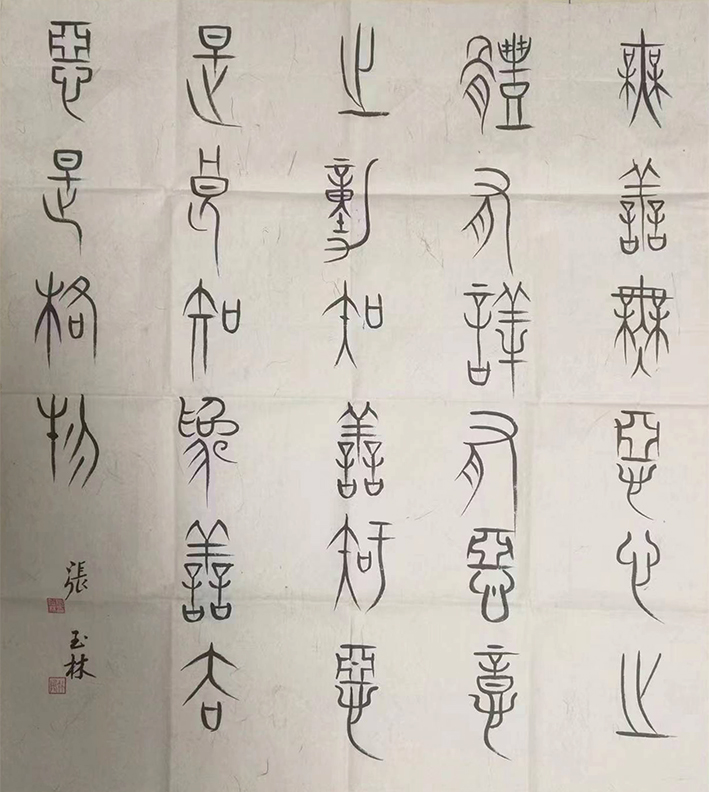 無善無惡心之
體有善有惡意
之動知善知惡
是良知為善去
惡是格物
張玉林